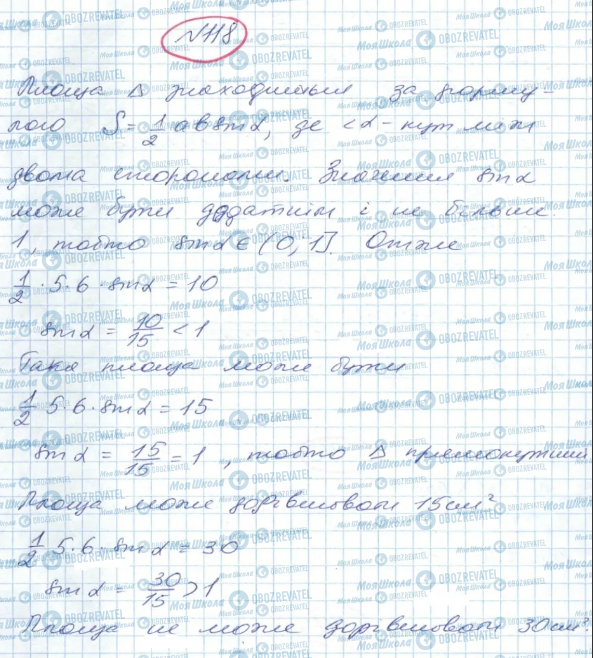 №118
Площа Δ знаходиться за форму-
лою S = 1/2 ab sinα, де <α - кут між
двома сторонами. Значення sinα
може бути додатнім і не більше
1, тобто sinα ∈ (0; 1]. Отже
1/2 · 5 · 6 · sinα = 10
sinα = 10/15 < 1
Така площа може бути
1/2 · 5 · 6 · sinα = 15
sinα = 15/15 = 1, тобто Δ прямокутний
Площа може дорівнювати 15 см²
1/2 · 5 · 6 · sinα = 30
sinα = 30/15 > 1
Площа не може дорівнювати 30 см².
Моя Школа OBOZREVATEL